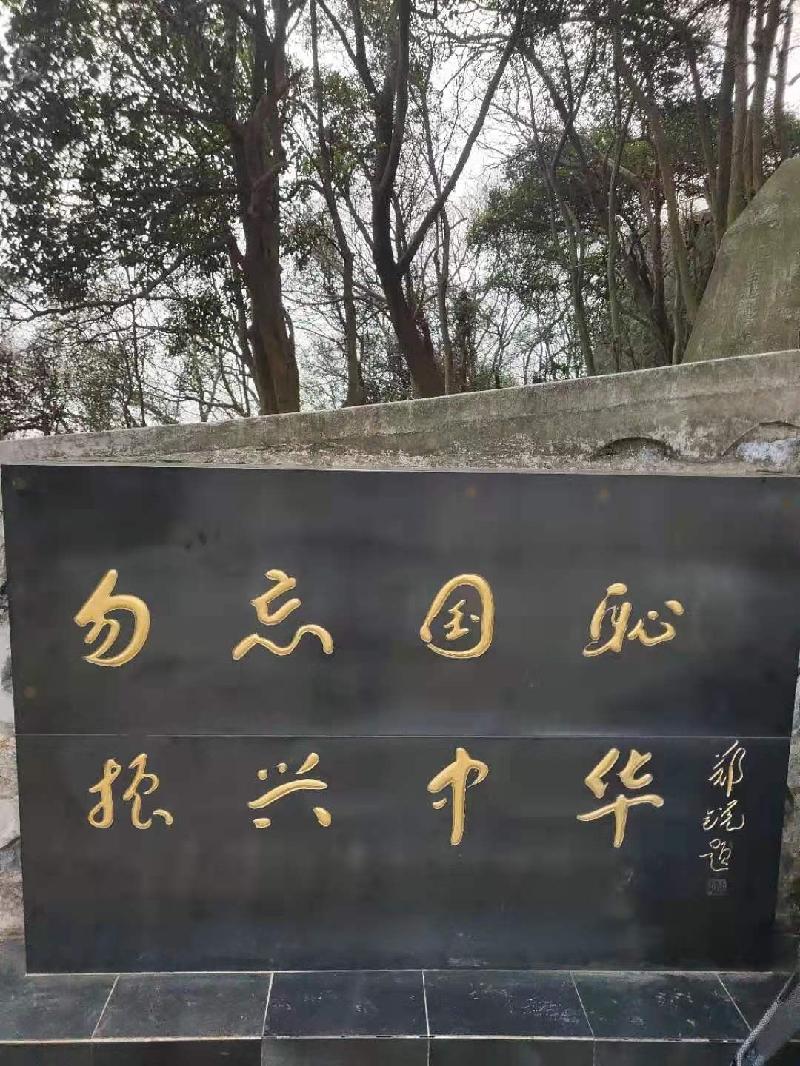 勿忘国耻
振兴中华
郑锐题